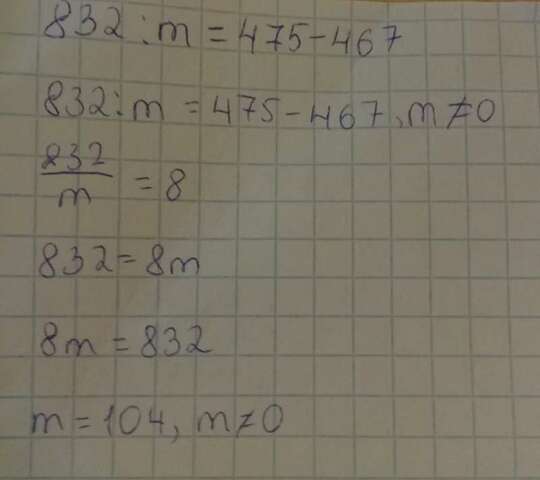 832 : m = 475 - 467
832 : m = 475 - 467, m ≠ 0
832/m = 8
832 = 8m
8m = 832
m = 104, m ≠ 0